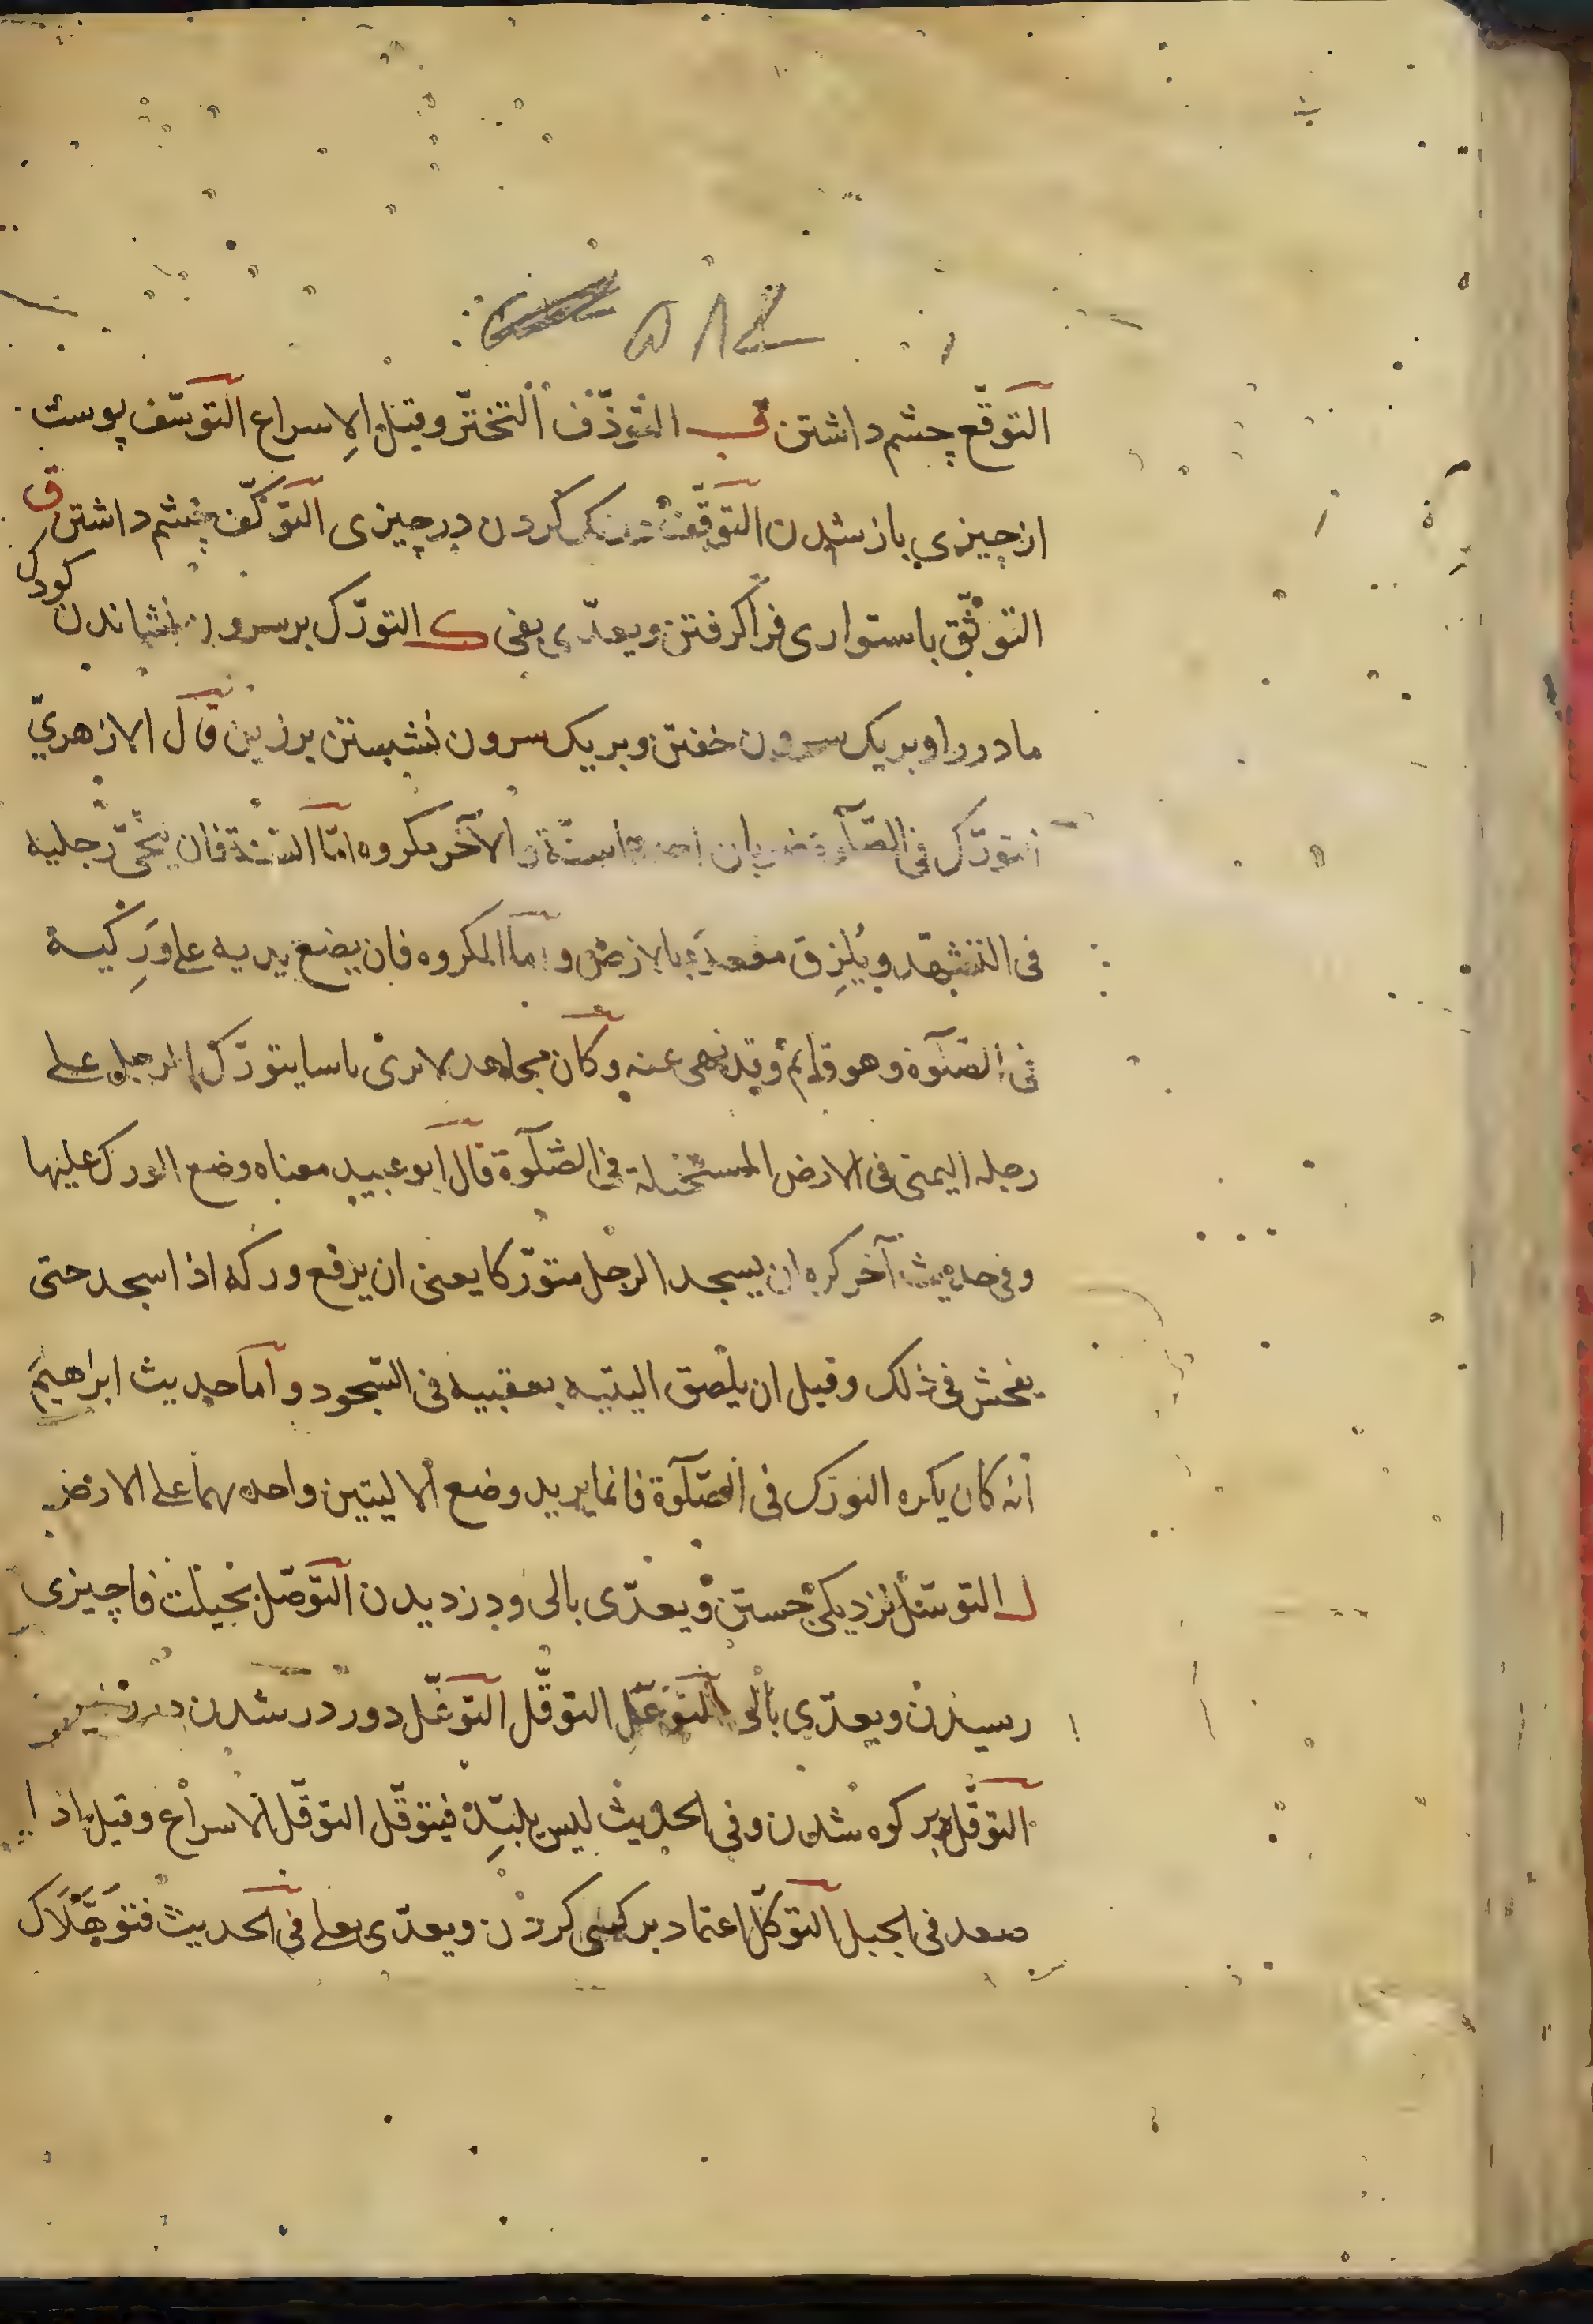 ۵۸۴
التوقّع چشم داشتن ف التوذّف التختّر وقيل الإسراع التوسّف پوست
از چیزی باز شدن التوقّف درنگ کردن در چیزی التوكّف چشم داشتن ق
التوثّق باستواری فراگرفتن ویعدّی بفی ک التورّک بر سرون نشاندن کودک
مادر را وبریک سرون خفتن وبریک سرون نشستن بر زین قال الازهریّ
التورّک فی الصّلوة ضربان احدهما سنّة والآخر مکروه امّا السّنة فان ینحّی رجلیه
فی التشهّد ویُلزِق مقعدَه بالارض واما المکروه فان یضع یدیه علی وَرِکیه
فی الصّلوة وهو قائم وقد نهی عنه وکان مجاهد لا یری باسا یتورّک الرجل علی
رجله الیمنی فی الارض المستحیلة فی الصّلوة قال ابو عبید معناه وضع الورک علیها
وفی حدیث آخر کره ان یسجد الرجل متورّکا یعنی ان یرفع ورکه اذا سجد حتی
یفحش فی ذلک وقیل ان یلصق الیتیه بعقبیه فی السّجود واما حدیث ابراهیم
انّه کان یکره التورّک فی الصّلوة فانما یرید وضع الالیتین واحدیهما علی الارض
ل التوسّل نزدیکی جستن ویعدّی بالی ودزدیدن التوصّل بحیلت فا چیزی
رسیدن ویعدّی بالی التوغّل التوقّل التوغّل دور در شدن در
التوقّل بر کوه شدن وفی الحدیث لیس بلبِدٍ فیتوقّل التوقّل الاسراع وقیل اذا
صعد فی الجبل التوکّل اعتماد بر کسی کردن ویعدّی بعلی فی الحدیث فتَوَاکَلا